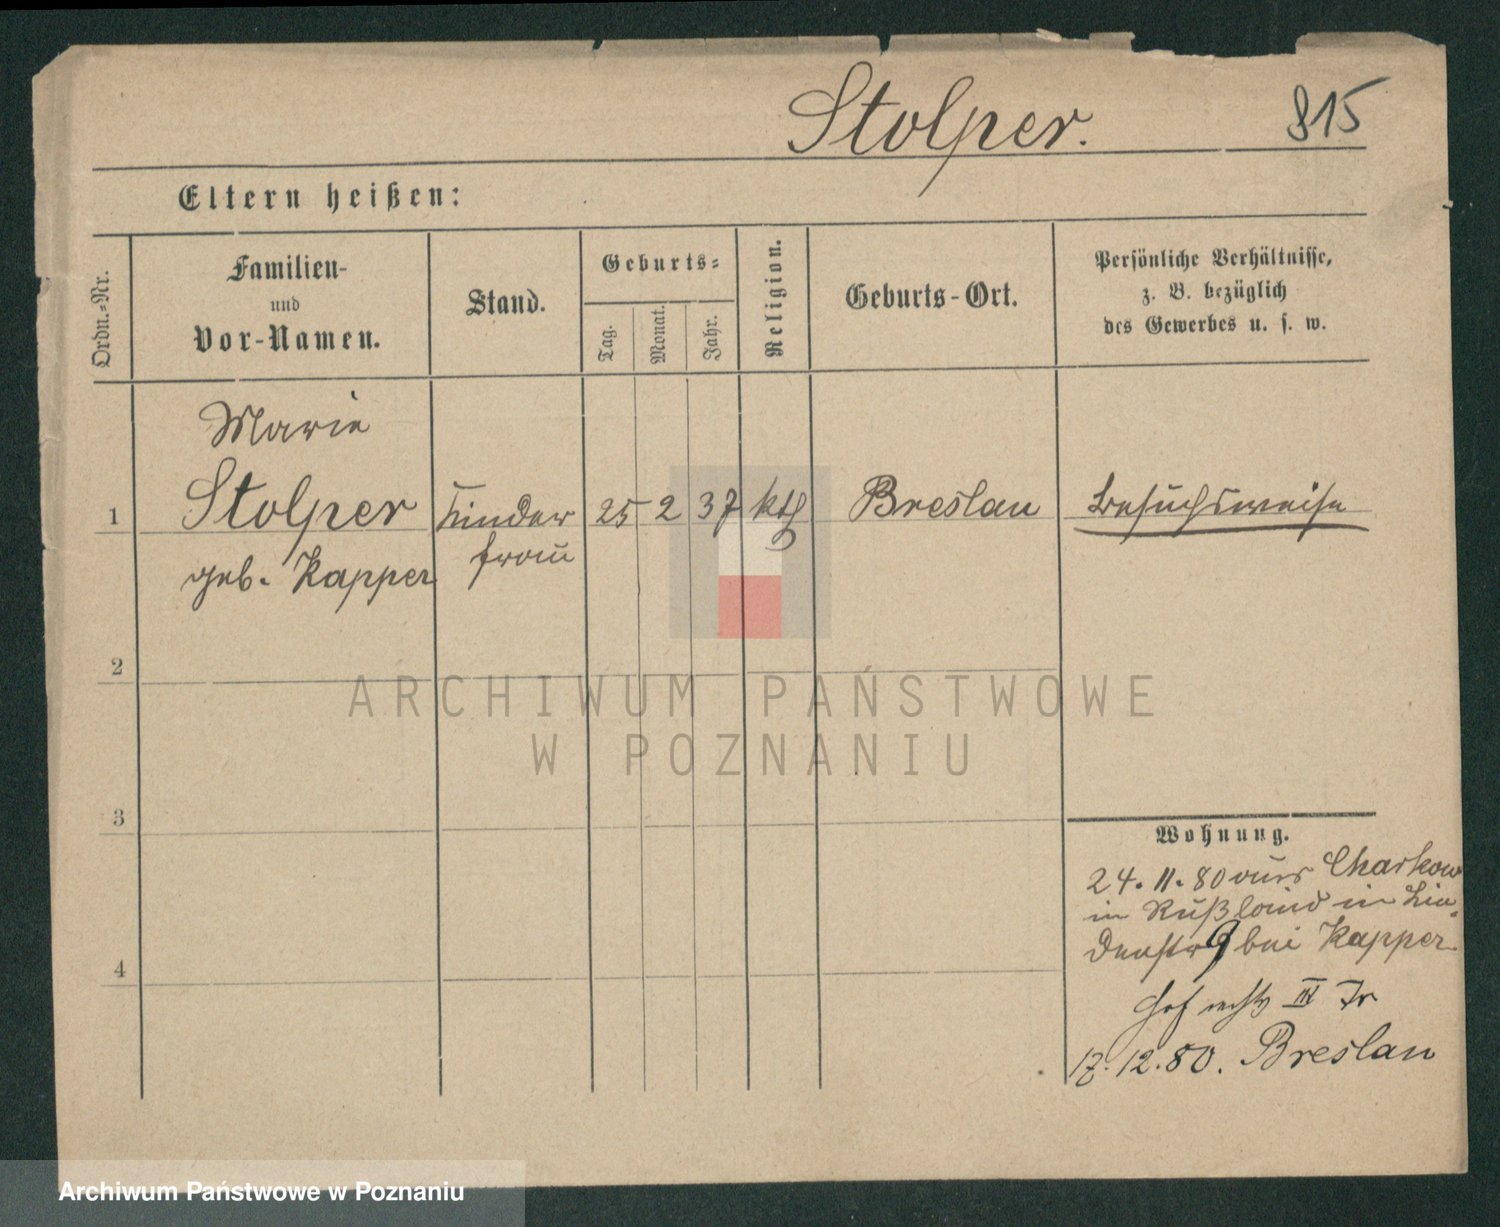 Stolper.
815
Eltern heißen:
Ordn.-Nr.
Familien-
und
Vor-Namen.
Stand.
Geburts-
Tag.
Monat.
Jahr.
Religion.
Geburts-Ort.
Persönliche Verhältnisse,
z. B. bezüglich
des Gewerbes u. s. w.
Marie
1 Stolper Kinder 25 2 37 kth Breslau besuchsweise
frau
geb. Kapper
2
3
4
Wohnung.
24. 11. 80 aus Charkow
in Rußland in Lin-
denstr 9 bei Kapper.
Hof rechts III Tr
17. 12. 80. Breslau
ARCHIWUM PAŃSTWOWE
W POZNANIU
Archiwum Państwowe w Poznaniu